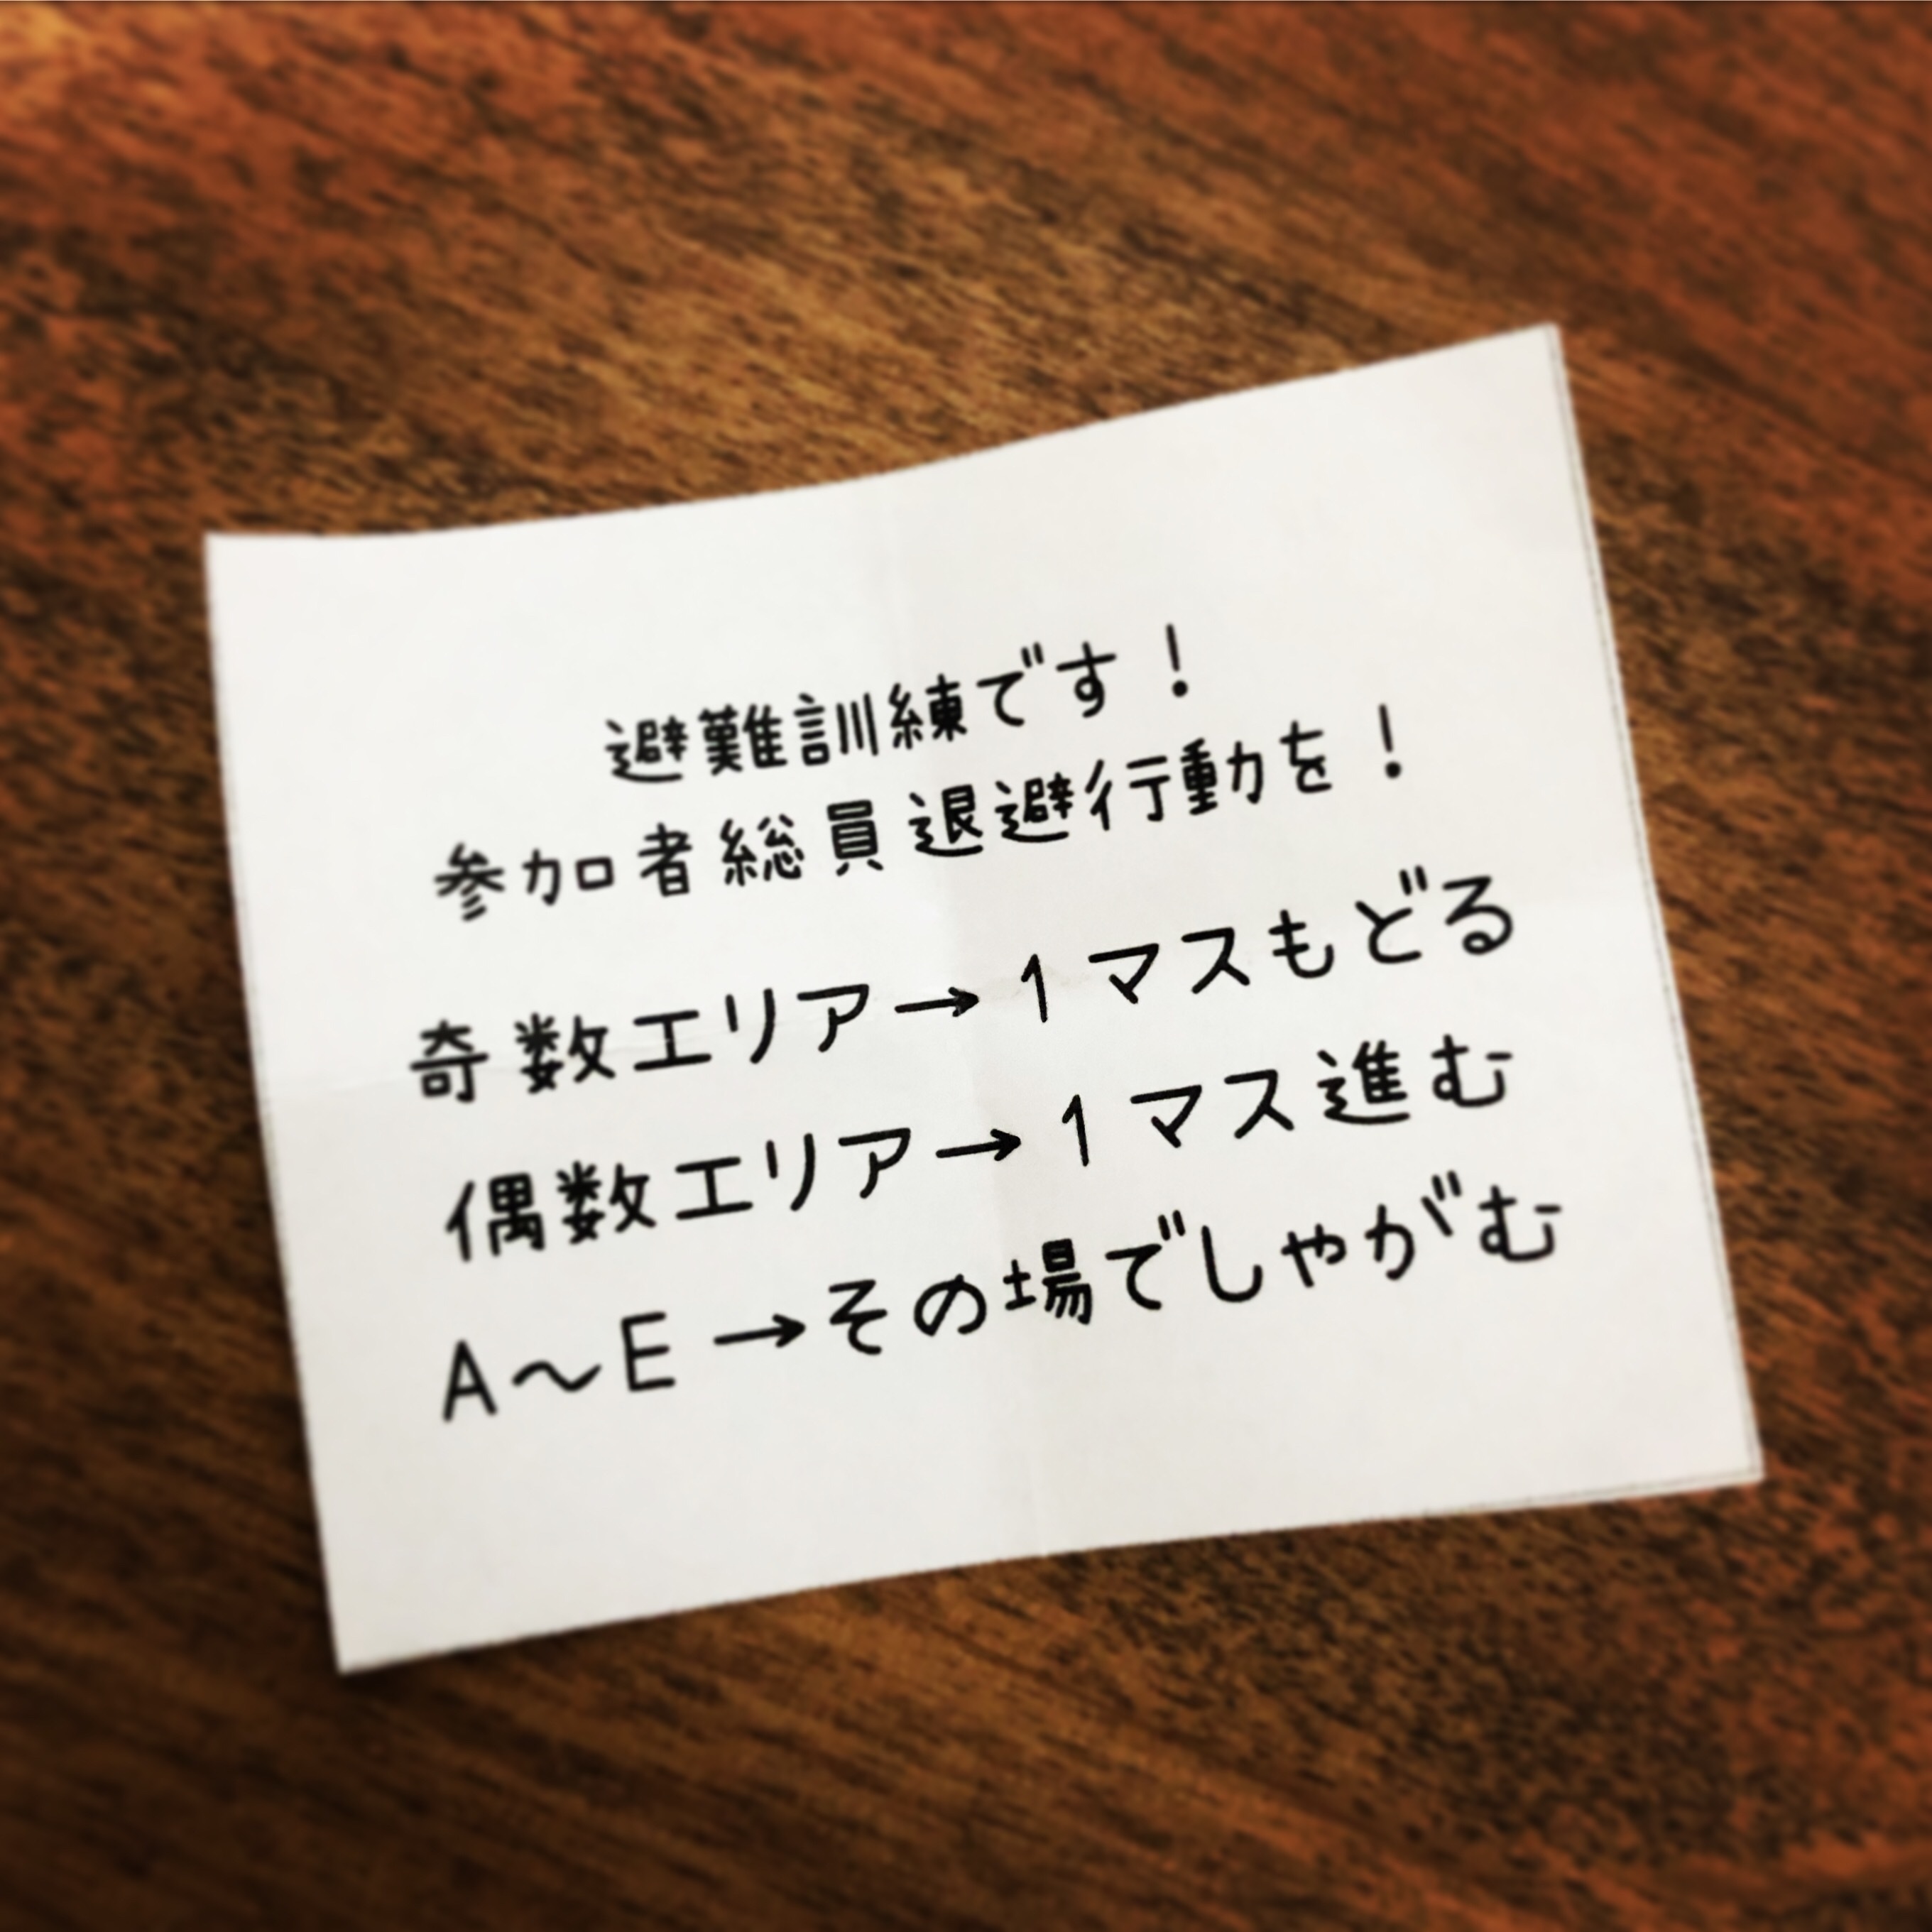 避難訓練です！
参加者総員退避行動を！
奇数エリア→1マスもどる
偶数エリア→1マス進む
A～E→その場でしゃがむ